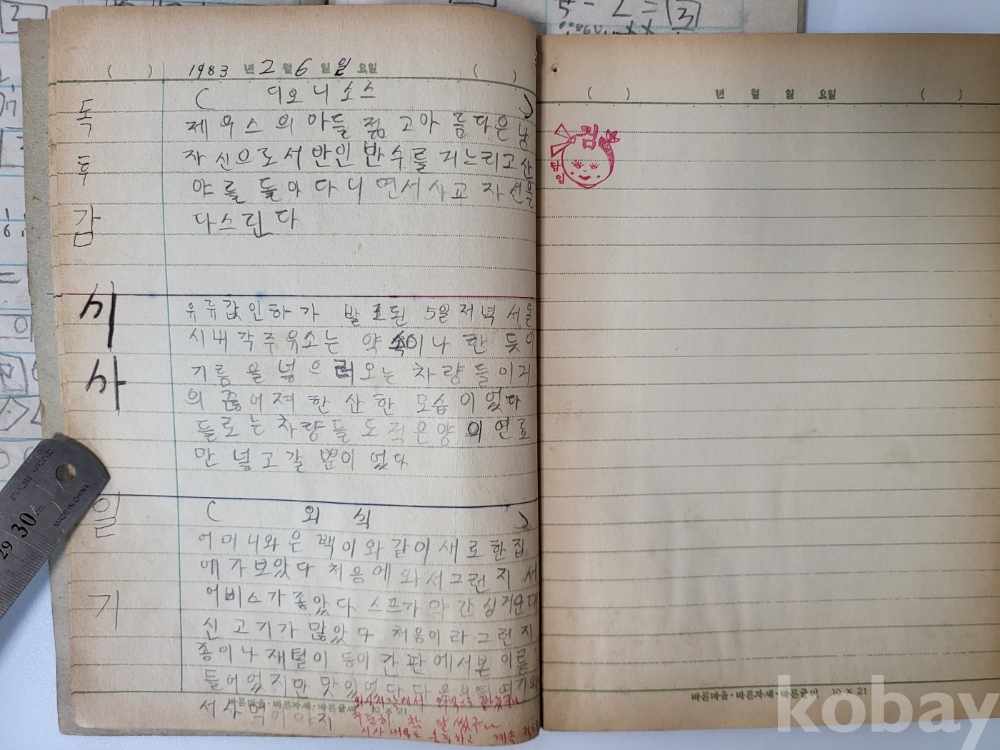 5 - 2 = 3
( ) 1983 년 2 월 6 일 일 요일 ( )
독후감
( 디오니소스 )
제우스의 아들 젊고 아름다운 남
자 신으로서 반인 반수를 거느리고 산
야를 돌아다니면서 사교 자선을
다스린다
시사
유류값 인하가 발표된 5일 저녁 서울
시내 각 주유소는 약속이나 한 듯이
기름을 넣으려 오는 차량들이 거
의 끊어져 한산한 모습이었다
들르는 차량들도 적은양의 연료
만 넣고 갈 뿐이었다
일기
( 외식 )
어머니와 은백이와 같이 새로한집
에 가보았다 처음에 와서 그런지 서
어비스가 좋았다 스프가 약간 싱거운대
신 고기가 많았다 처음이라 그런지
종이나 재털이 등이 간판에서본 이름
들어었지만 맛있었다
서 사먹어야지
바른마음·바른자세·바른글씨 10 × 21
참 잘 썼구나
( ) 년 월 일 요일 ( )
검
담임
바른마음·바른자세·바른글씨 10 × 21
29 30
MADE IN CHINA
kobay